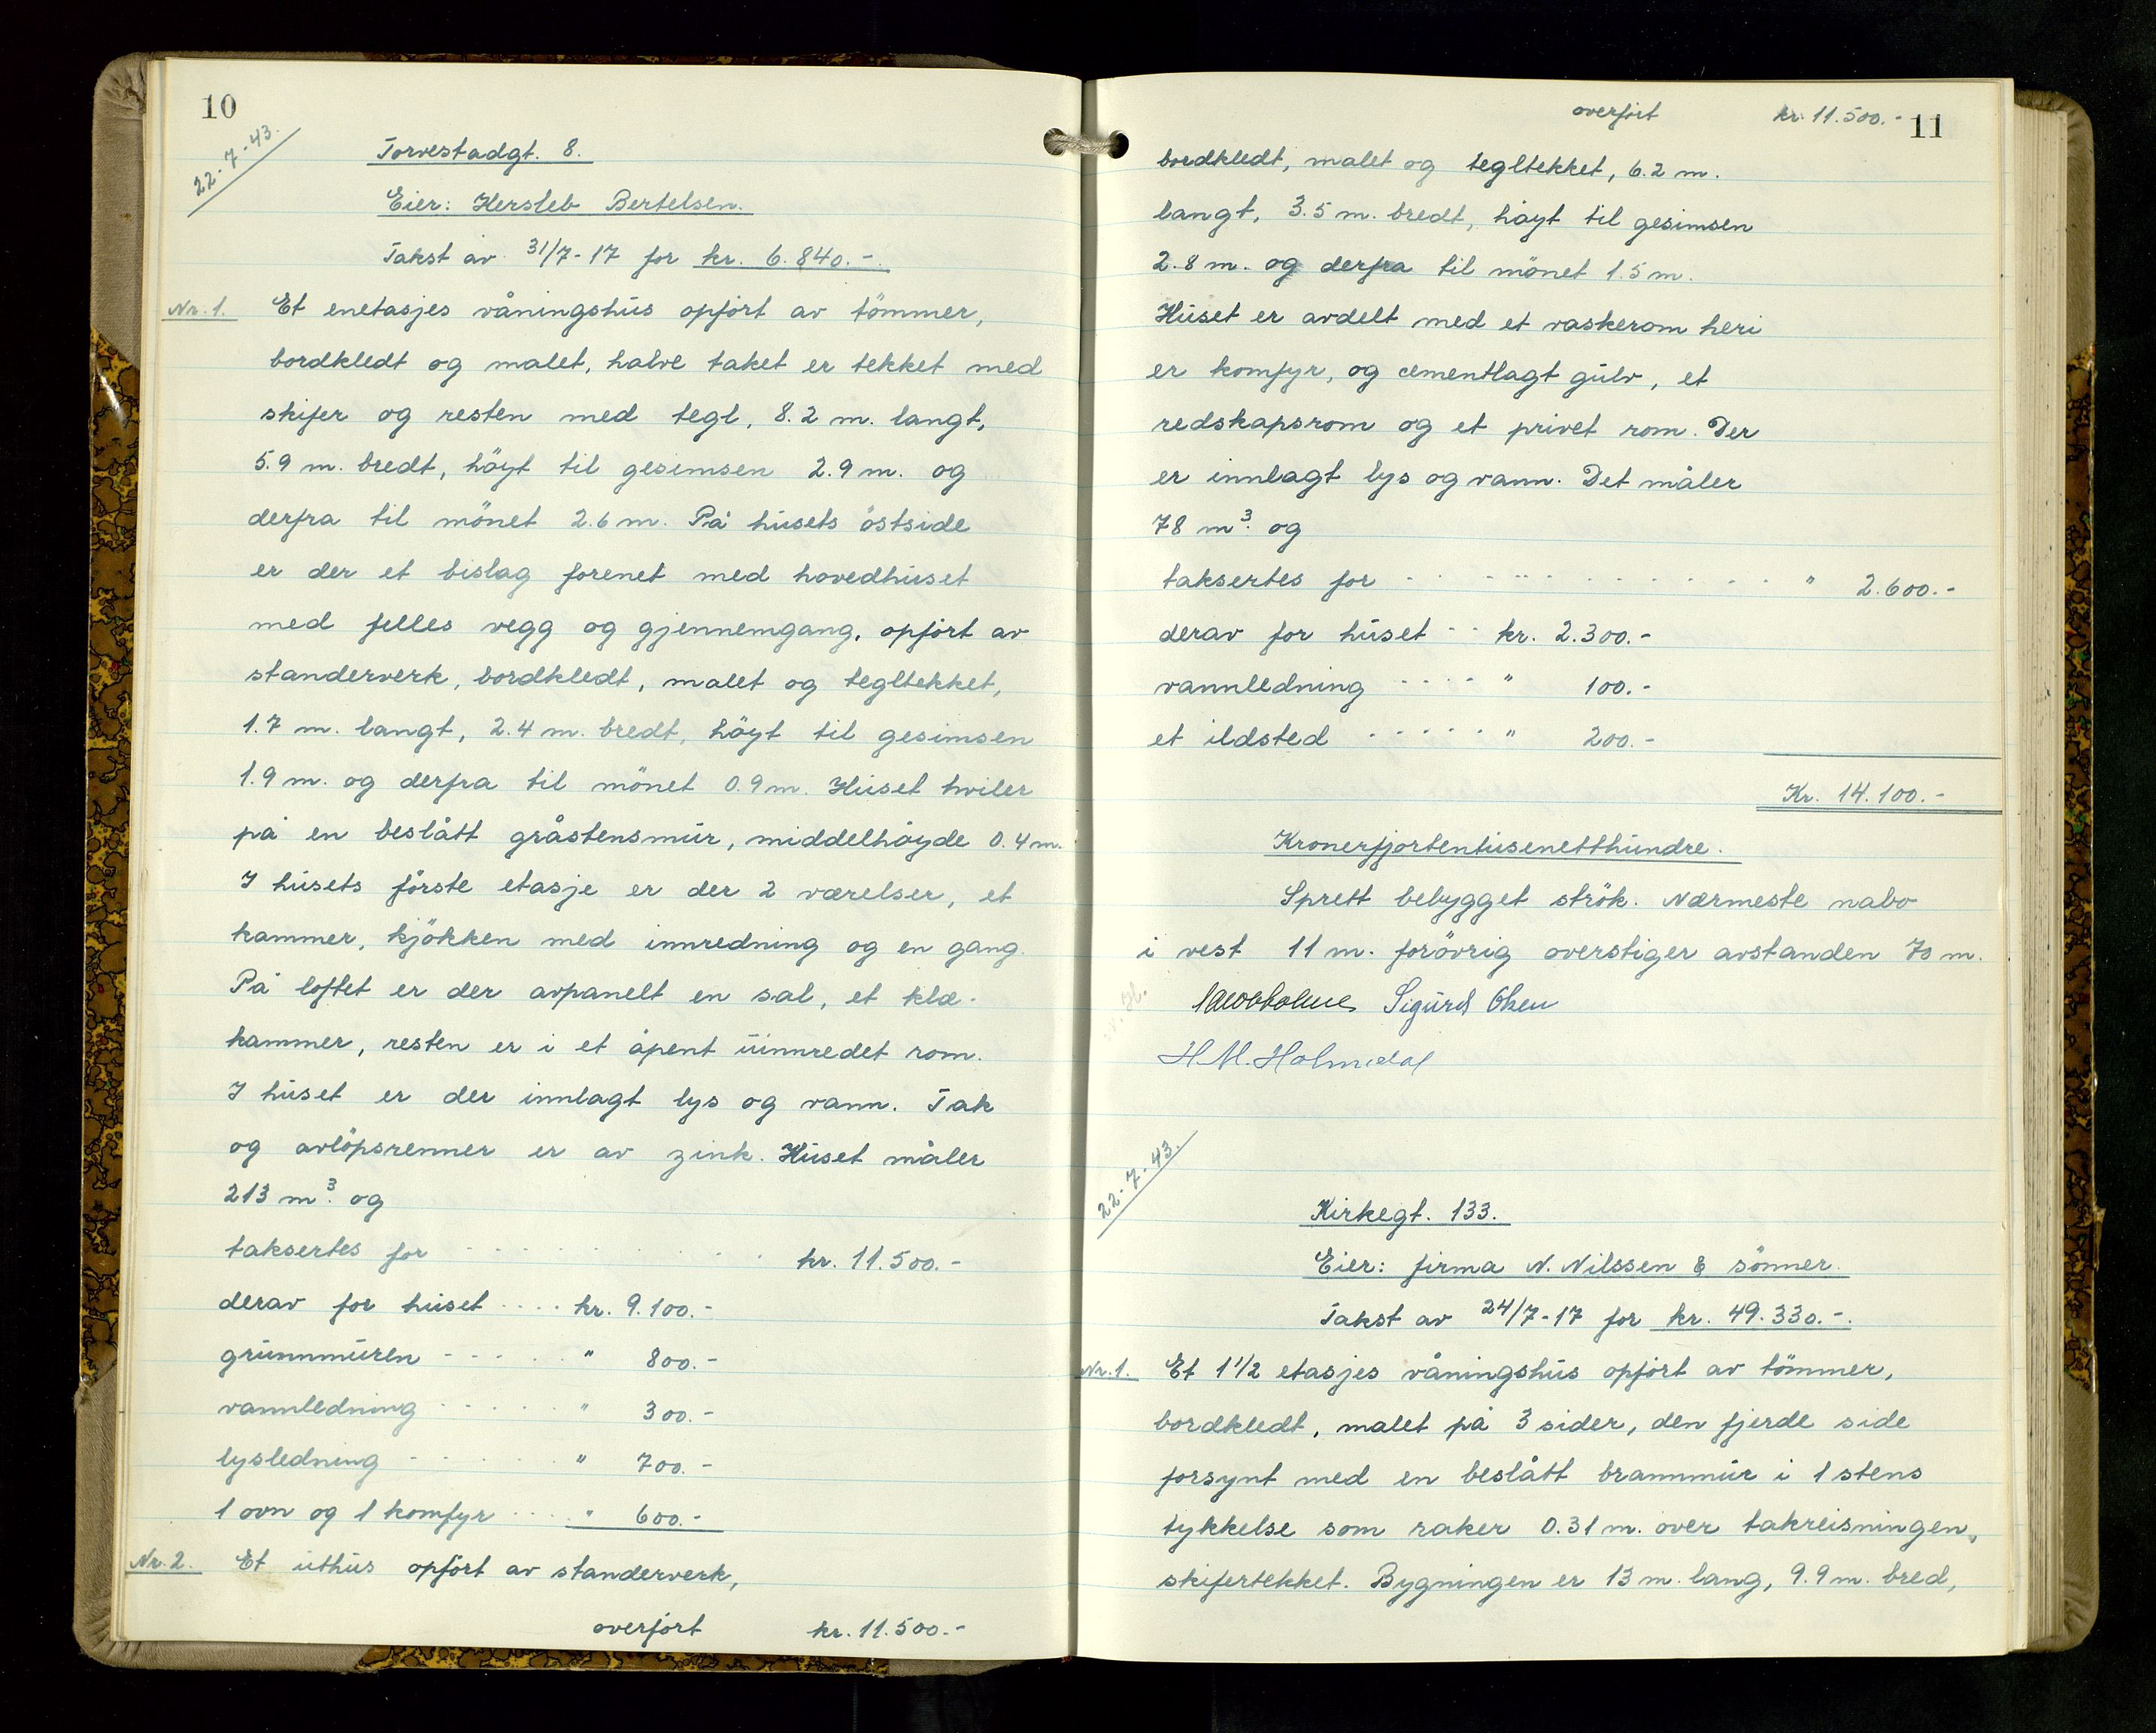 10
22-7-43.
Torvestadgt. 8.
Eier: Hersleb Bertelsen.
Takst av 31/7-17 for kr. 6.840.-.
Nr. 1. Et enetasjes våningshus opfört av tömmer,
bordkledt og malet, halve taket er tekket med
skifer og resten med tegl, 8.2 m. langt,
5.9 m. bredt, höyt til gesimsen 2.9 m. og
derfra til mönet 2.6 m. På husets östside
er der et bislag forenet med hovedhuset
med felles vegg og gjennemgang, opfört av
standerverk, bordkledt, malet og tegltekket,
1.7 m. langt, 2.4 m. bredt, höyt til gesimsen
1.9 m. og derfra til mönet 0.9 m. Huset hviler
på en beslått gråstensmur, middelhöyde 0.4 m.
I husets förste etasje er der 2 værelser, et
kammer, kjökken med innredning og en gang.
På loftet er der avpanelt en sal, et klæ-
kammer, resten er i et åpent uinnredet rom.
I huset er der innlagt lys og vann. Tak
og avlöpsrenner er av zink. Huset måler
213 m³. og
taksertes for kr. 11.500.-
derav for huset .... kr. 9.100.-
grunnmuren - - - - . " 800.-
vannledning - - - - . " 300.-
lysledning - - - - . " 700.-
1 ovn og 1 komfyr .... " 600.-
Nr. 2. Et uthus opfört av standerverk,
overfört kr. 11.500.-
overfört kr. 11.500.- 11
bordkledt, malet og tegltekket, 6.2 m.
langt, 3.5 m. bredt, höyt til gesimsen
2.8 m. og derfra til mönet 1.5 m.
Huset er avdelt med et vaskerom heri
er komfyr, og cementlagt gulv, et
redskapsrom og et privet rom. Der
er innlagt lys og vann. Det måler
78 m³. og
taksertes for " 2.600.-
derav for huset - - kr. 2.300.-
vannledning - - - - " 100.-
et ildsted - - - - - " 200.-
Kr. 14.100.-
Kronerfjortentusenetthundre.
Sprett bebygget strök. Nærmeste nabo
i vest 11 m. forövrig overstiger avstanden 70 m.
Sigurd Olsen
H.M. Holmedal
22-7-43.
Kirkegt. 133.
Eier: firma N. Nilssen & sönner.
Takst av 24/7-17 for kr. 49.330.-.
Nr. 1. Et 1 1/2 etasjes våningshus opfört av tömmer,
bordkledt, malet på 3 sider, den fjerde side
forsynt med en beslått brannmur i 1 stens
tykkelse som raker 0.31 m. over takreisningen,
skifertekket. Bygningen er 13 m. lang, 9.9 m. bred,